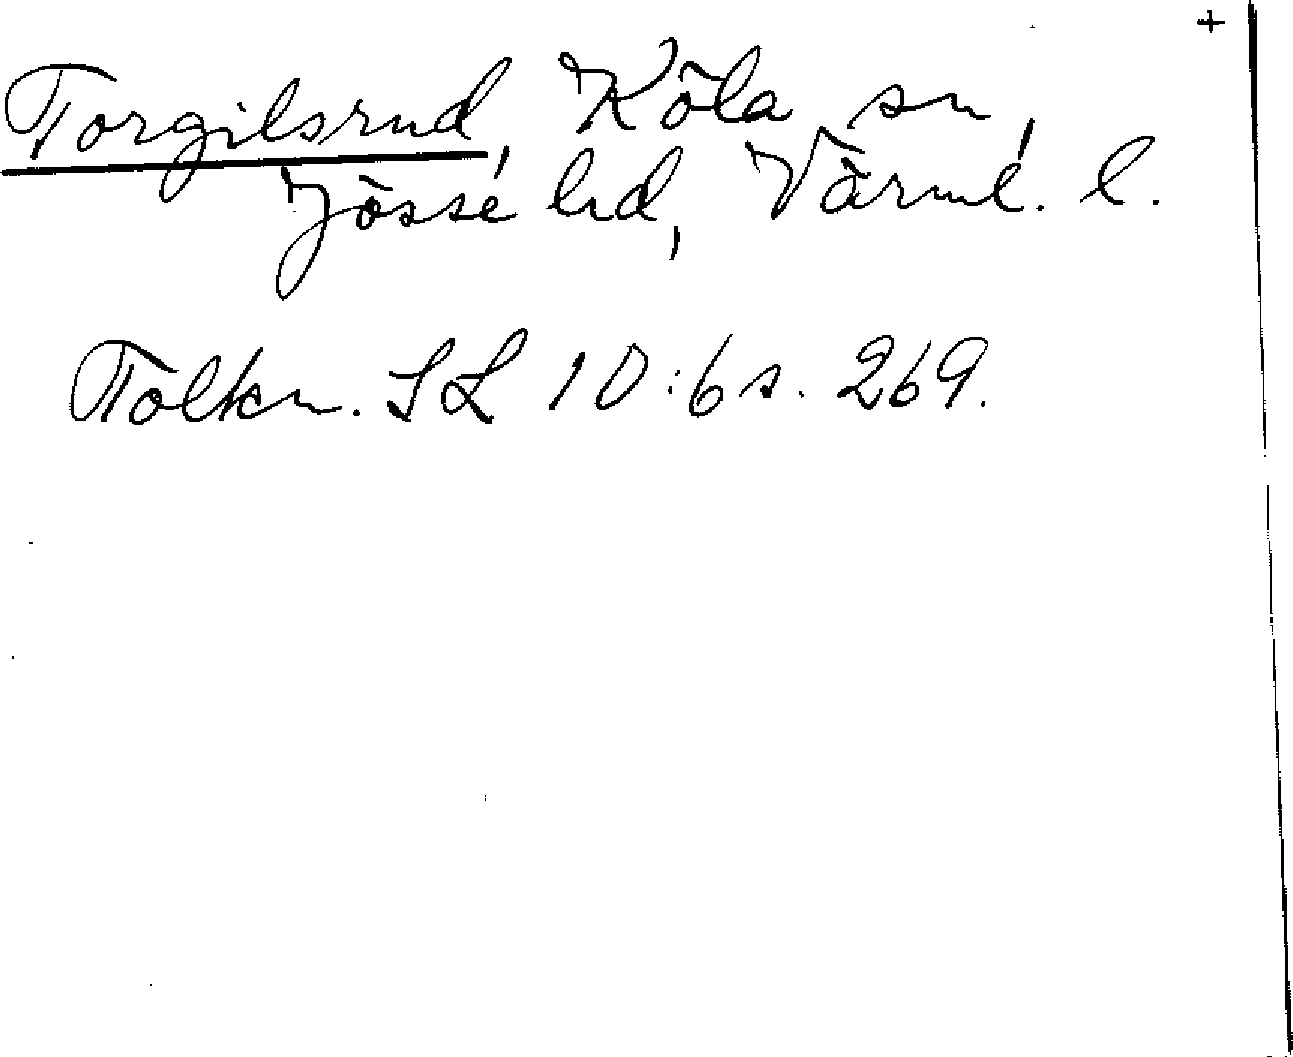 +
Torgilsrud, Köla sn,
Jösse hd, Värml. l.
Tolkn. SL 10:6 s. 269.